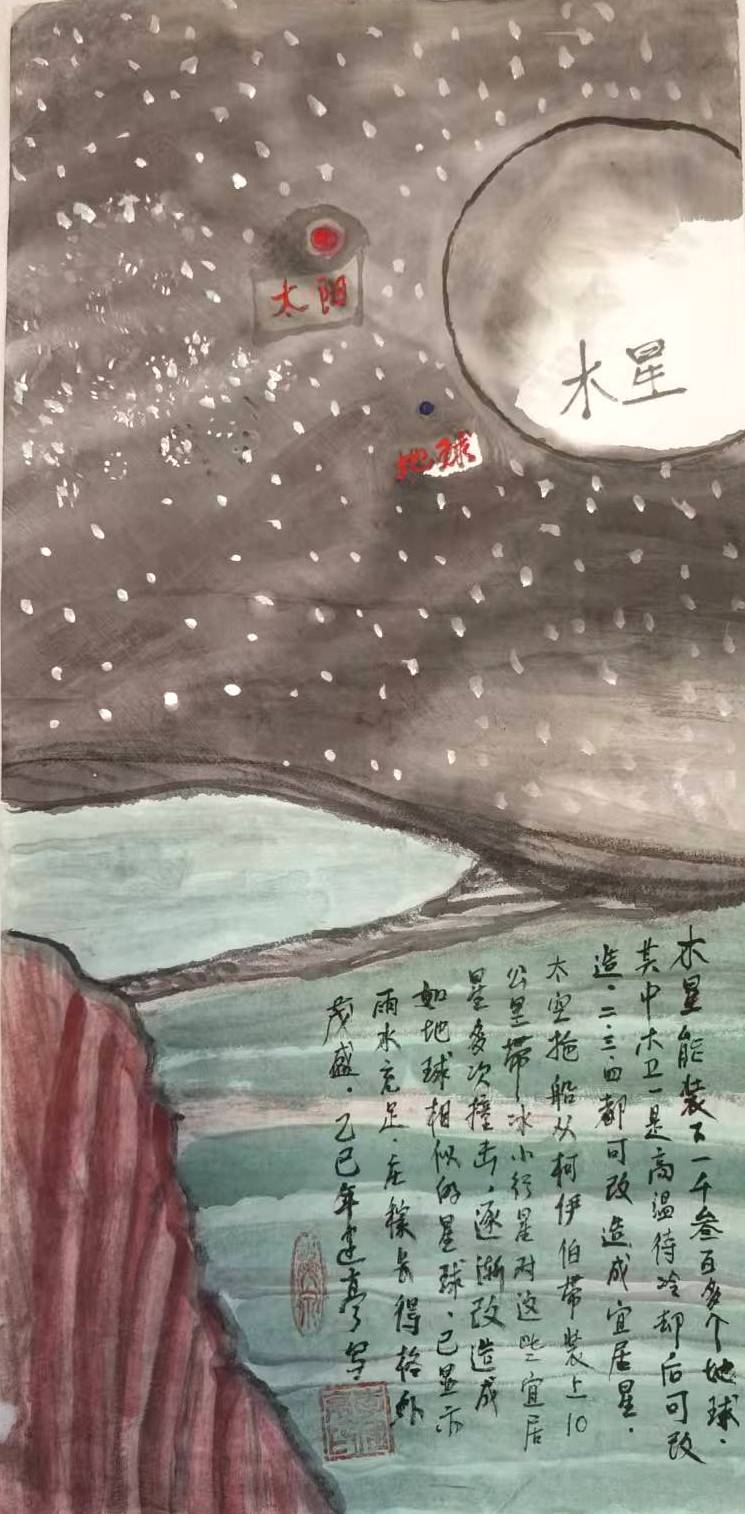 太阳
地球
木星
木星能装下一千叁百多个地球.
其中木卫一是高温待冷却后可改
造.二.三.四都可改造成宜居星.
太空拖船从柯伊伯带装上10
公里带冰小行星对这些宜居
星多次撞击,逐渐改造成
如地球相似的星球.已显示
雨水充足.庄稼长得格外
茂盛.乙巳年建亭写.